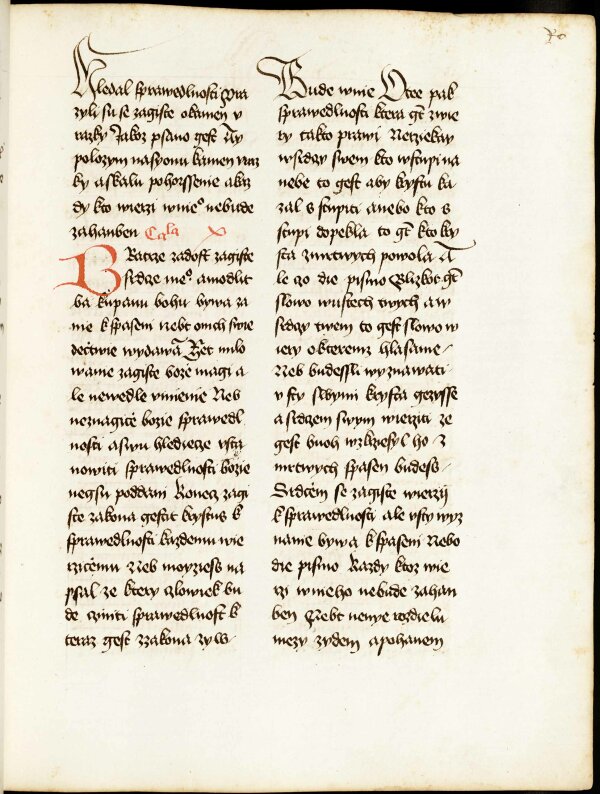 hledal sprawedlnosti Vra
zyli su se zagiste okamen v
razky Jakoz psano gest Ay
polozym nasyonu kamen vraz
ky askalu pohorssenie akaz
dy kto wierzi wnieº nebude
zahanben Cap̃la x
BRatrze zadost zagiste
srdcze meº amodlit
ba kupanu bohu bywa za
nie kspaseni nebt onich swie
dectwie wydawa Zet milo
wanie zagiste bozie magi a
le newedle vmienie Neb
neznagice bozie sprawedl
nosti aswu hlediecze vsta
nowiti sprawedlnosti bozie
negsu poddani Konecz zagi
ste zakona gestit krystus k
sprawedlnosti kazdemu wie
rzicemu Neb moyziess na
psal ze ktery czlowiek bu
de cziniti sprawedlnost k
teraz gest zzakona zyw
Bude wnie Otce pak
sprawedlnost ktera gt zwie
ry takto prawi Nerziekay
wsrdcy swem kto wstupi na
nebe to gest aby krysta ka
zal sstupiti anebo kto s
stupi dopekla to gt kto kry
sta zmrtwych powola A
le czo die pismo Blizkot gt
slowo wustech twych a w
srdcy twem to gest slowo w
iery okteremz hlasame
Neb budessli wyznawati
vsty swymi krysta gezisse
asrdczem swym wierziti ze
gest buoh wzkrzesyl ho z
mrtwych spasen budess
Srdcem se zagiste wierzij
ksprawedlnosti ale vsty wyz
nanie bywa kspaseni Nebo
die pismo Kazdy ktoz wie
rzi wnieho nebude zahan
ben Nebt nenye rozdielu
mezy zydem apohanem